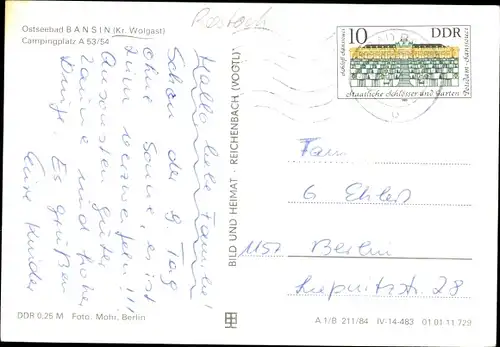 Ostseebad BANSIN (Kr. Wolgast)
Campingplatz A 53/54
Hallo liebe Familie!
Schon der 9. Tag
ohne Sonne, es ist
zum verzweifeln!!!
Ansonsten guter
Laune und hoher
Dinge. Es grüßen
Eure Kinder
DDR 0,25 M Foto. Mohr. Berlin
BILD UND HEIMAT · REICHENBACH (VOGTL)
10 DDR
Schloß Sanssouci
Potsdam-Sanssouci
Staatliche Schlösser und Gärten
Fam.
6 Ehlert
1157 Berlin
28
A 1/B 211/84 IV-14-483 01 01 11 729